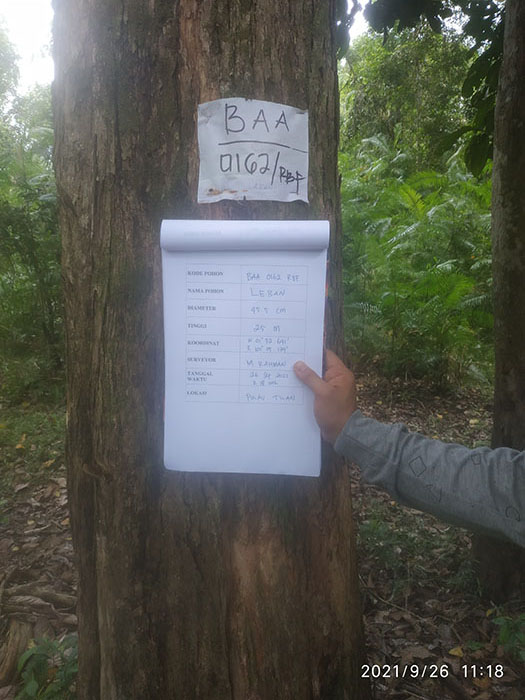 BAA
0162/RBF
KODE POHON BAA 0162 RBF
NAMA POHON LEBAN
DIAMETER CM
TINGGI 25 M
KOORDINAT
SURVEYOR M RAHMAN
TANGGAL
WAKTU
LOKASI PULAU
2021/9/26 11:18